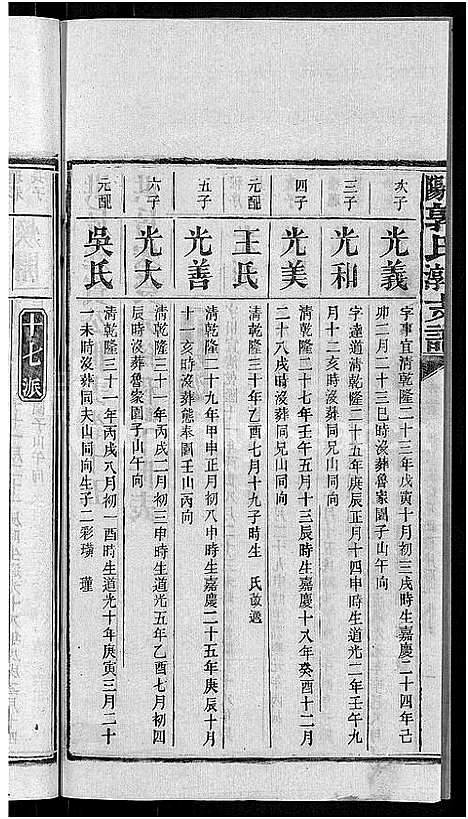 陽郭氏湖支譜
次子
光義
字事宜淸乾隆二十三年戊寅十月初三戌時生嘉慶二十四年己
卯二月二十三巳時沒葬魯家園子山午向
三子
光和
字達道淸乾隆二十五年庚辰正月十四申時生道光二年壬午九
月十二亥時沒葬同兄山同向
四子
光美
淸乾隆二十七年壬午五月十三辰時生嘉慶十八年癸酉十二月
二十八戌時沒葬同兄山同向
元配
王氏
淸乾隆三十年乙酉七月十九子時生 氏改適
五子
光善
淸乾隆二十九年甲申正月初八申時生嘉慶二十五年庚辰十月
十一亥時沒葬熊奉園壬山丙向
六子
光大
淸乾隆三十一年丙戌二月初三申時生道光五年乙酉七月初四
辰時沒葬魯家園子山午向
元配
吳氏
淸乾隆三十一年丙戌八月初一酉時生道光十年庚寅三月二十
一未時沒葬同夫山同向生子二彩璜 瑾
十七派